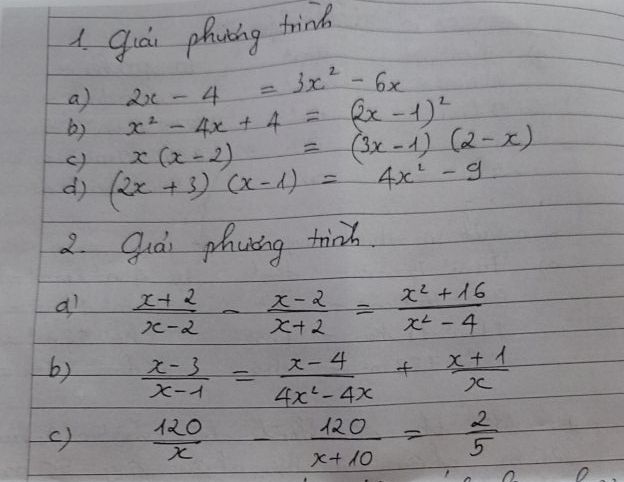 1. Giải phương trình
a) 2x - 4 = 3x² - 6x
b) x² - 4x + 4 = (2x - 1)²
c) x(x - 2) = (3x - 1)(2 - x)
d) (2x + 3)(x - 1) = 4x² - 9
2. Giải phương trình.
a) (x + 2)/(x - 2) - (x - 2)/(x + 2) = (x² + 16)/(x² - 4)
b) (x - 3)/(x - 1) = (x - 4)/(4x² - 4x) + (x + 1)/x
c) 120/x - 120/(x + 10) = 2/5